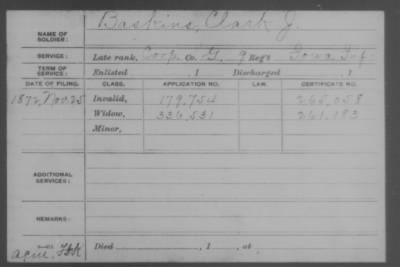 NAME OF SOLDIER: Baskins, Clark J.
SERVICE: Late rank, Corp Co. G, 9 Reg't Iowa Inf
TERM OF SERVICE: Enlisted , 1 Discharged , 1
DATE OF FILING. CLASS. APPLICATION NO. LAW. CERTIFICATE NO.
1872, Nov. 25 Invalid, 179,754 265,058
Widow, 336,531 241,183
Minor,
ADDITIONAL SERVICES:
REMARKS:
Died , 1 , at